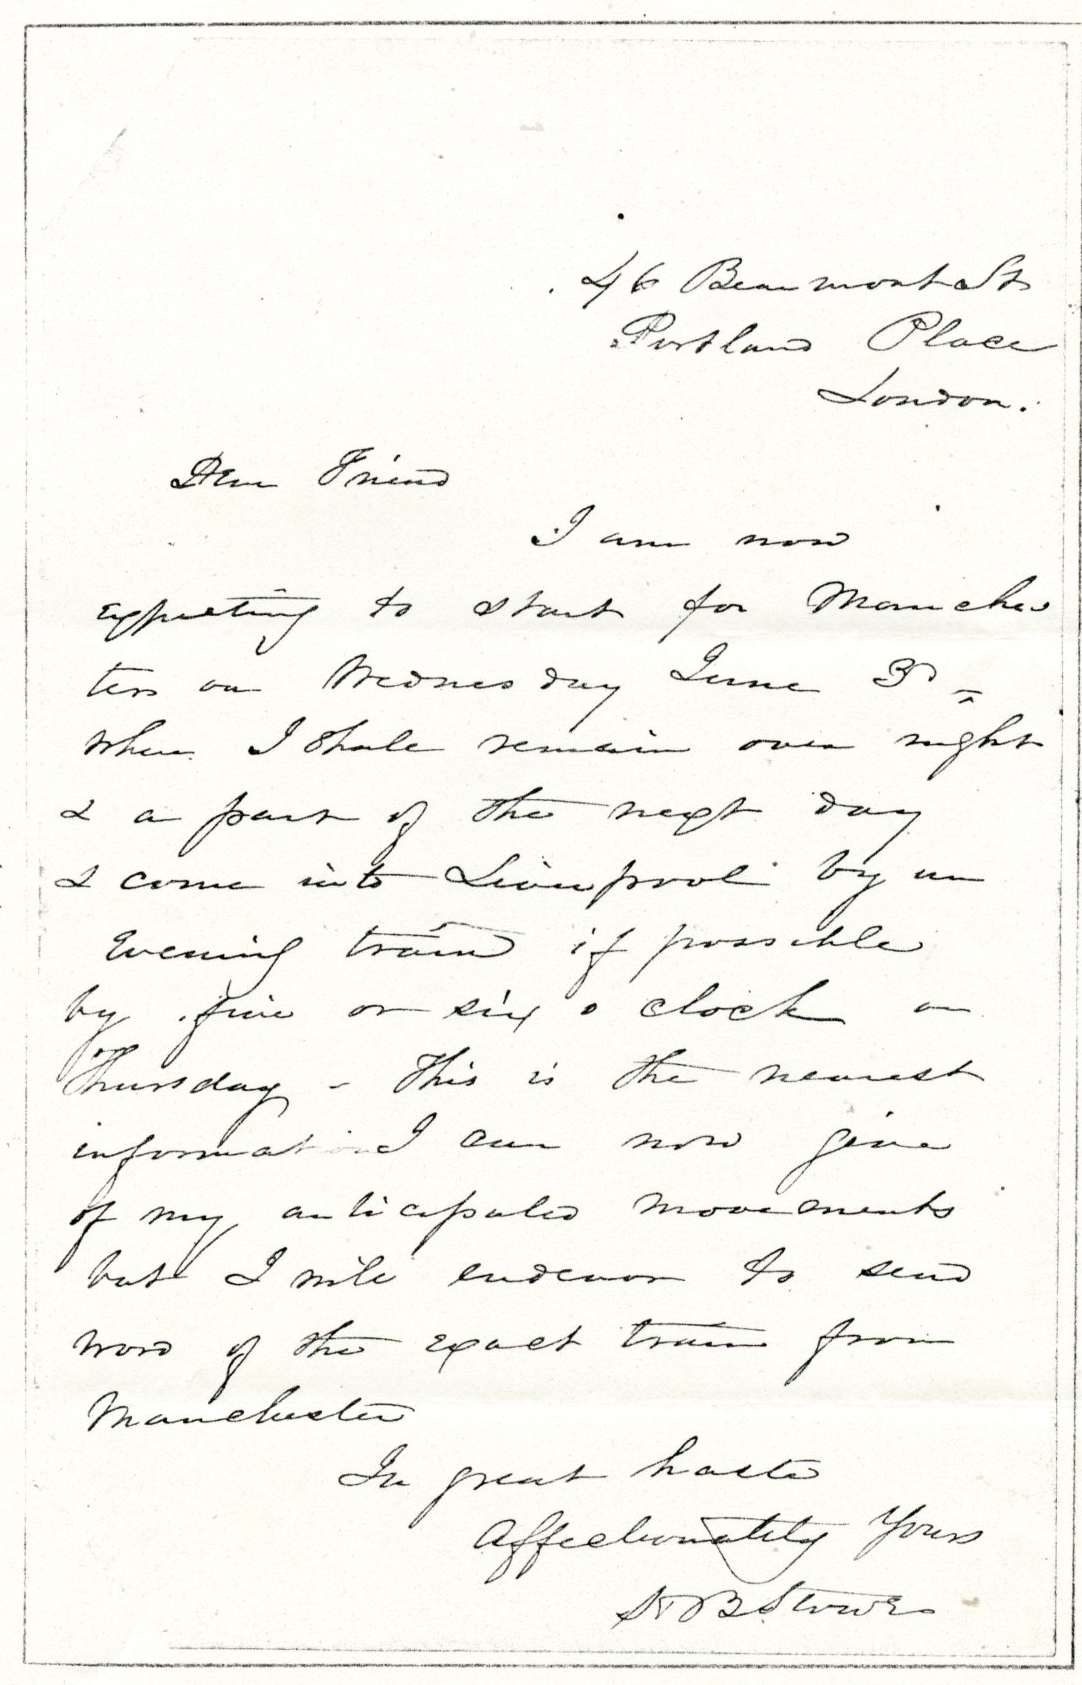 46 Beaumont St
Portland Place
London.
Dear Friend
I am now
expecting to start for Manches
ter on Wednesday June 3d
when I shall remain over night
& a part of the next day
& come into Liverpool by an
Evening train if possible
by five or six o clock on
Thursday - This is the nearest
information I can now give
of my anticipated movements
but I will endeavor to send
word of the exact train from
Manchester
In great haste
Affectionately Yours
H B Stowe